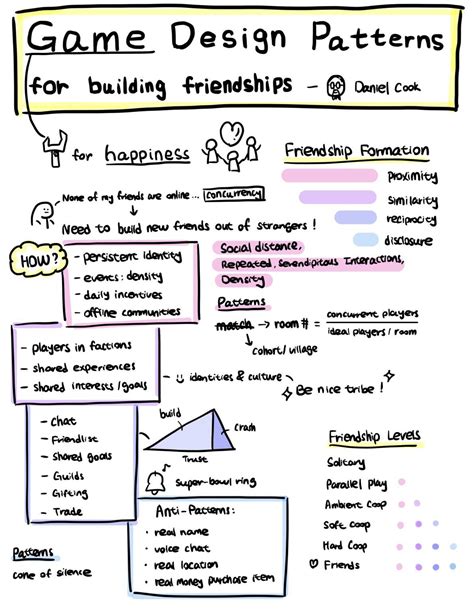 Game Design Patterns
for building friendships - Daniel Cook
for happiness
Friendship Formation
proximity
similarity
reciprocity
disclosure
None of my friends are online... concurrency
Need to build new friends out of strangers!
HOW?
- persistent identity
- events: density
- daily incentives
- offline communities
Social distance,
Repeated, Serendipitous Interactions,
Density
Patterns
match → room # = concurrent players
ideal players / room
cohort/village
- players in factions
- shared experiences
- shared interests/goals
- identities & culture
Be nice tribe!
- Chat
- Friendlist
- Shared goals
- Guilds
- Gifting
- Trade
build
crash
Trust
Super-bowl ring
Friendship Levels
Solitary
Parallel play
Ambient Coop
Soft Coop
Hard Coop
Friends
Anti-Patterns:
• real name
• voice chat
• real location
• real money purchase item
Patterns
cone of silence